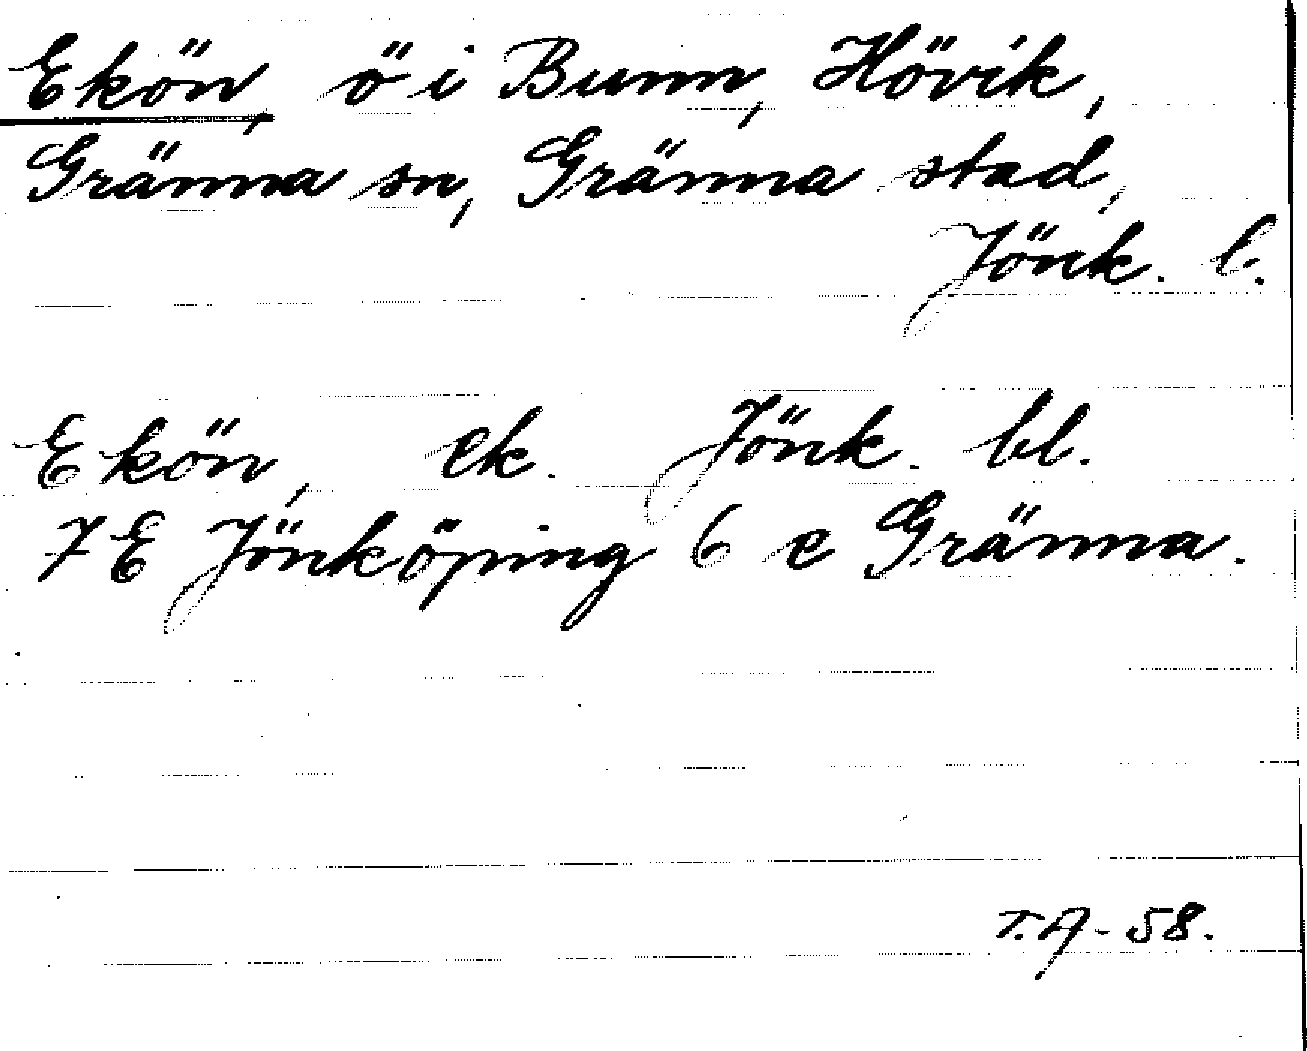 Ekön, ö i Bunn, Hövik,
Gränna sn, Gränna stad,
Jönk. l.
Ekön, ek. Jönk. bl.
7E Jönköping 6 e Gränna.
T.A - 58.